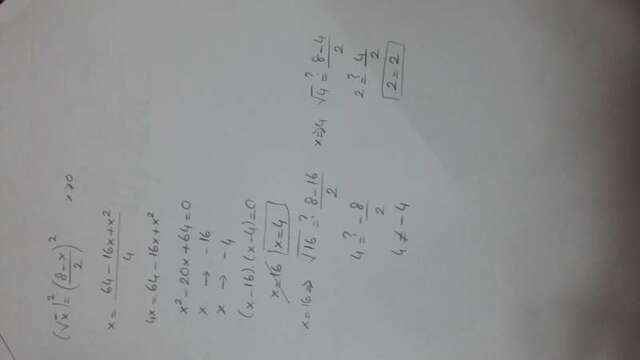 (√x)² = (8-x/2)² x>0
x = 64-16x+x²/4
4x = 64-16x+x²
x²-20x+64=0
x → -16
x → -4
(x-16).(x-4)=0
x=16 x=4
x=16⇒ √16 ?= 8-16/2
4 ?= -8/2
4≠-4
x⇒4 √4 ?= 8-4/2
2 ?= 4/2
2=2